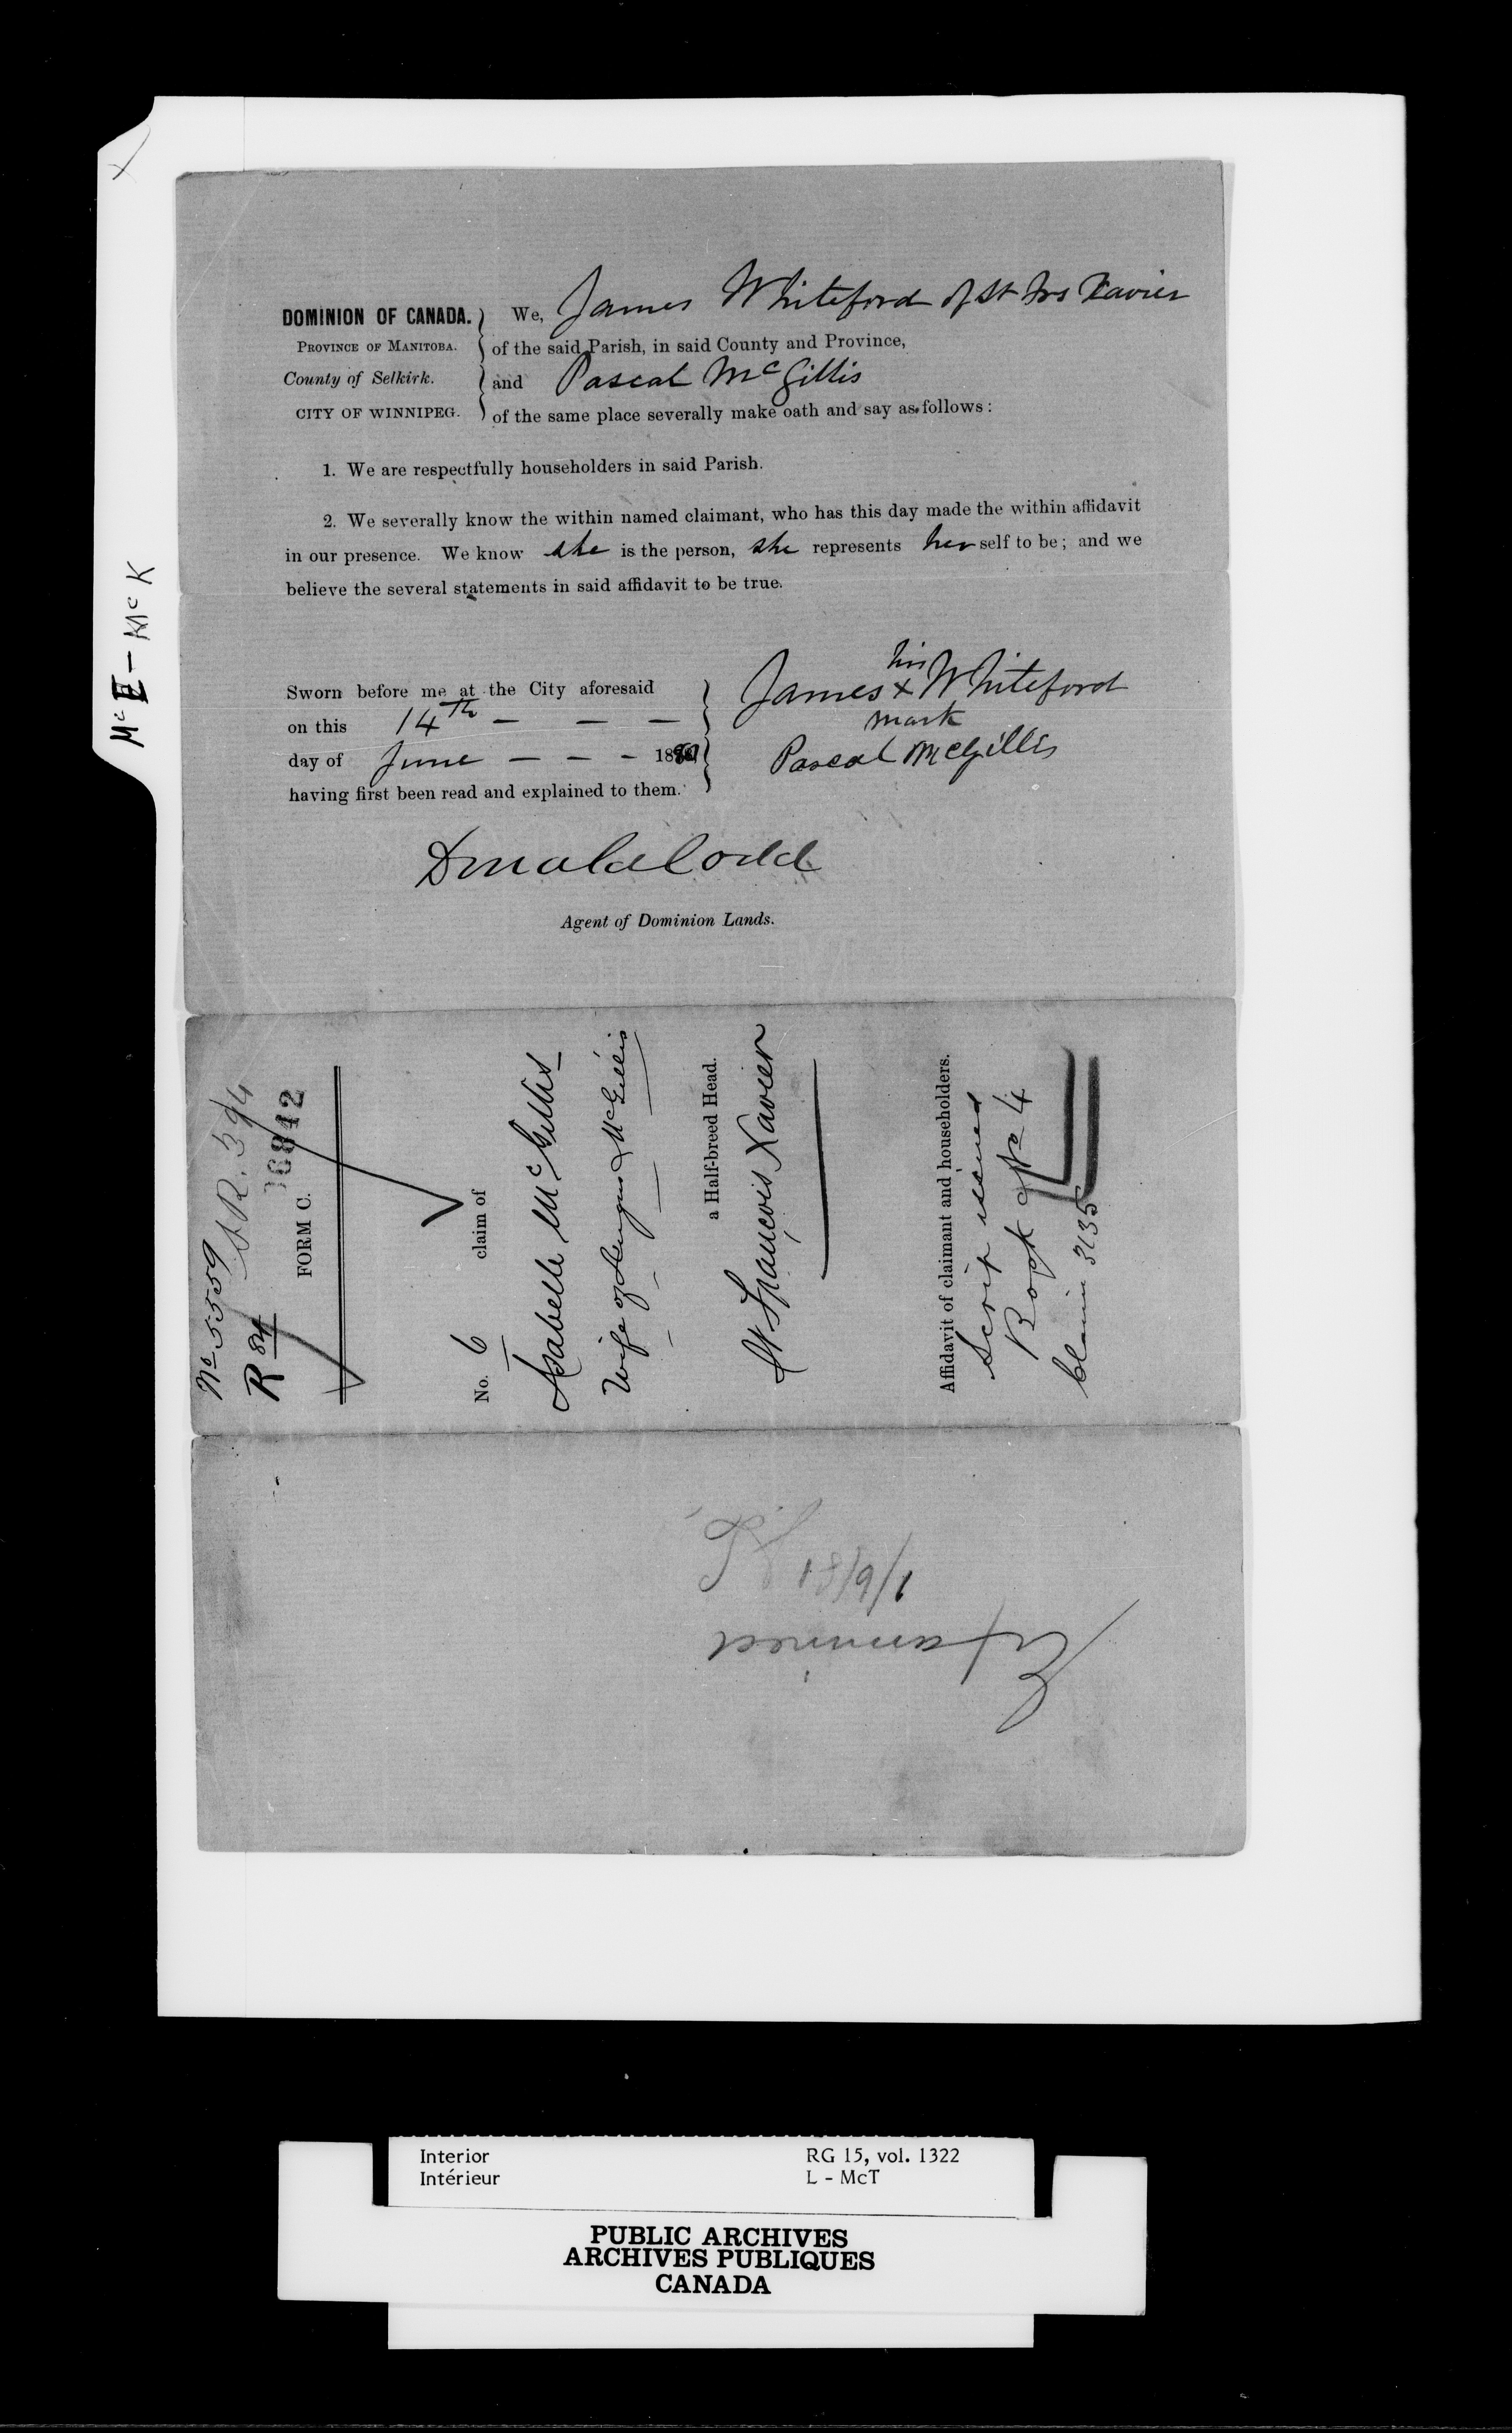 DOMINION OF CANADA.
PROVINCE OF MANITOBA.
County of Selkirk.
CITY OF WINNIPEG.
We, James Whiteford of St Frs Xavier
of the said Parish, in said County and Province,
and Pascal McGillis
of the same place severally make oath and say as follows:
1. We are respectfully householders in said Parish.
2. We severally know the within named claimant, who has this day made the within affidavit
in our presence. We know she is the person, she represents her self to be; and we
believe the several statements in said affidavit to be true.
Sworn before me at the City aforesaid
on this 14th — — —
day of June — — — 18
having first been read and explained to them.
his
James x Whiteford
mark
Pascal McGillis
Donald Codd
Agent of Dominion Lands.
No 5559
R 84
FORM C.
No. 6 claim of
Isabelle McGillis
Wife of Angus McGillis
a Half-breed Head.
St François Xavier
Affidavit of claimant and householders.
Scrip issued
Book No 4
Claim 3135
Examined
Mc K
Interior
Intérieur
RG 15, vol. 1322
L - McT
PUBLIC ARCHIVES
ARCHIVES PUBLIQUES
CANADA